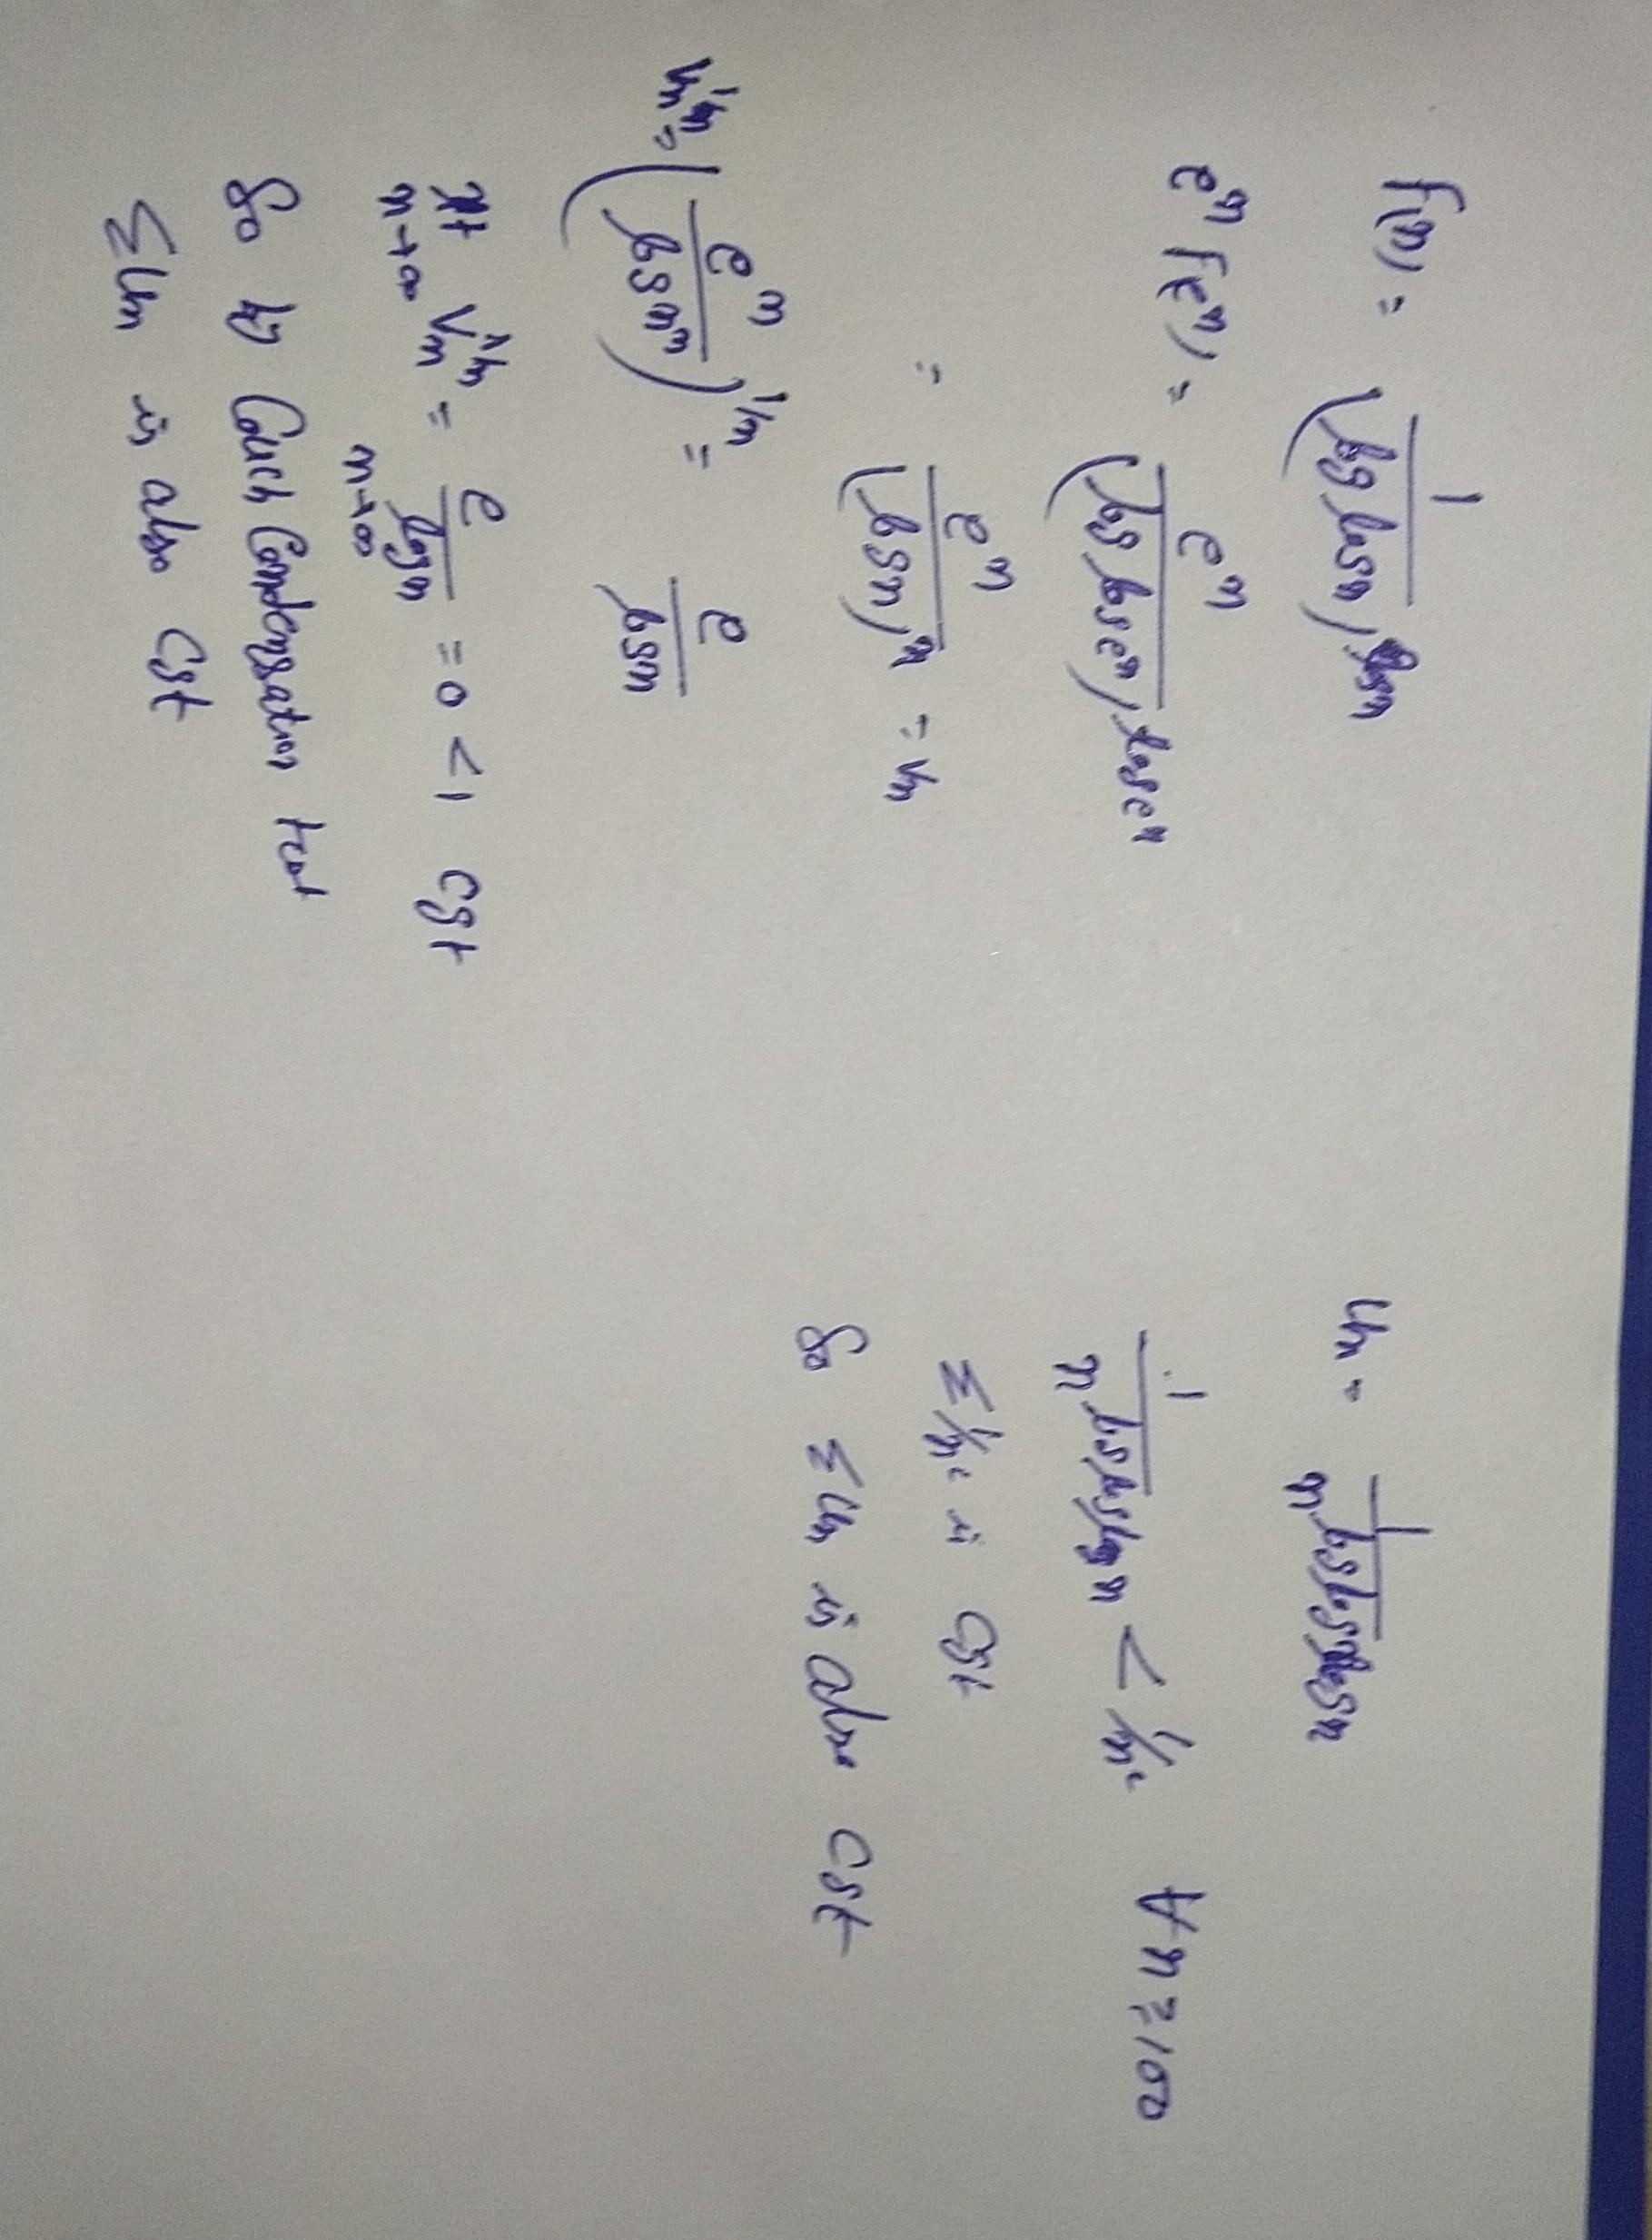 f(n) = 1/(log log n)^log n
e^n f(e^n) = e^n/(log log e^n)^log e^n
= e^n/(log n)^n = Vn
Vn^1/n = (e^n/log n^n)^1/n = e/log n
lt n→∞ Vn^1/n = e/log n n→∞ = 0 < 1 cgt
So by Cauch Condensation test
Σun is also Cgt
un = 1/n^log log log n
1/n^log log log n < 1/n² ∀ n ≥ 100
Σ1/n² is Cgt
So Σun is also Cgt